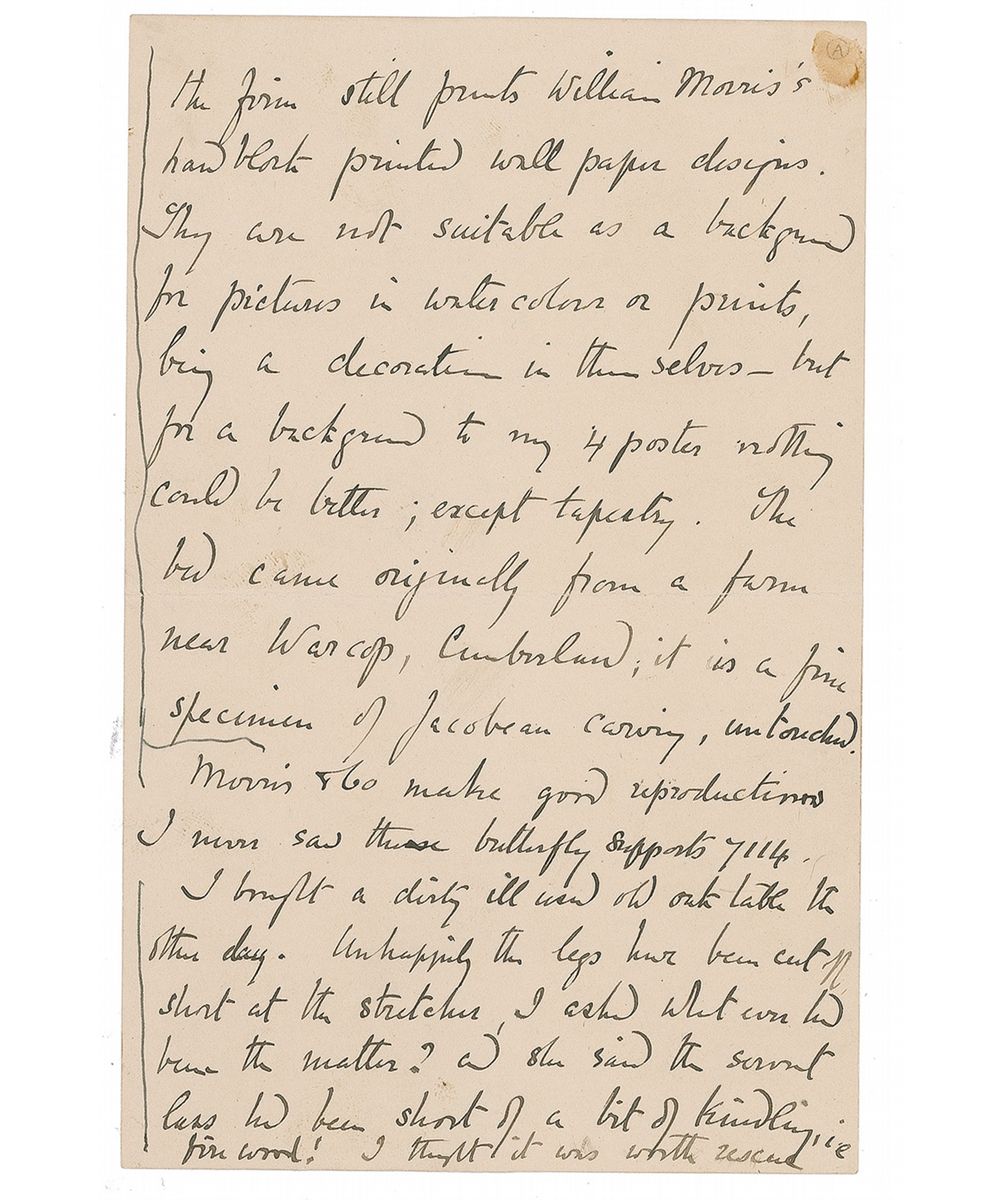 A
the firm still prints William Morris's
hand block printed wall paper designs.
They are not suitable as a background
for pictures in water colour or prints,
being a decoration in them selves – but
for a background to my 4 poster nothing
could be better ; except tapestry. The
bed came originally from a farm
near Warcop, Cumberland; it is a fine
specimen of Jacobean carving, untouched.
Morris & Co make good reproductions
I never saw these butterfly supports 7114.
I bought a dirty ill used old oak table the
other day. Unhappily the legs have been cut off
short at the stretcher, I asked what ever had
been the matter? and she said the servant
lass had been short of a bit of kindling, ie
fire wood! I thought it was worth rescue